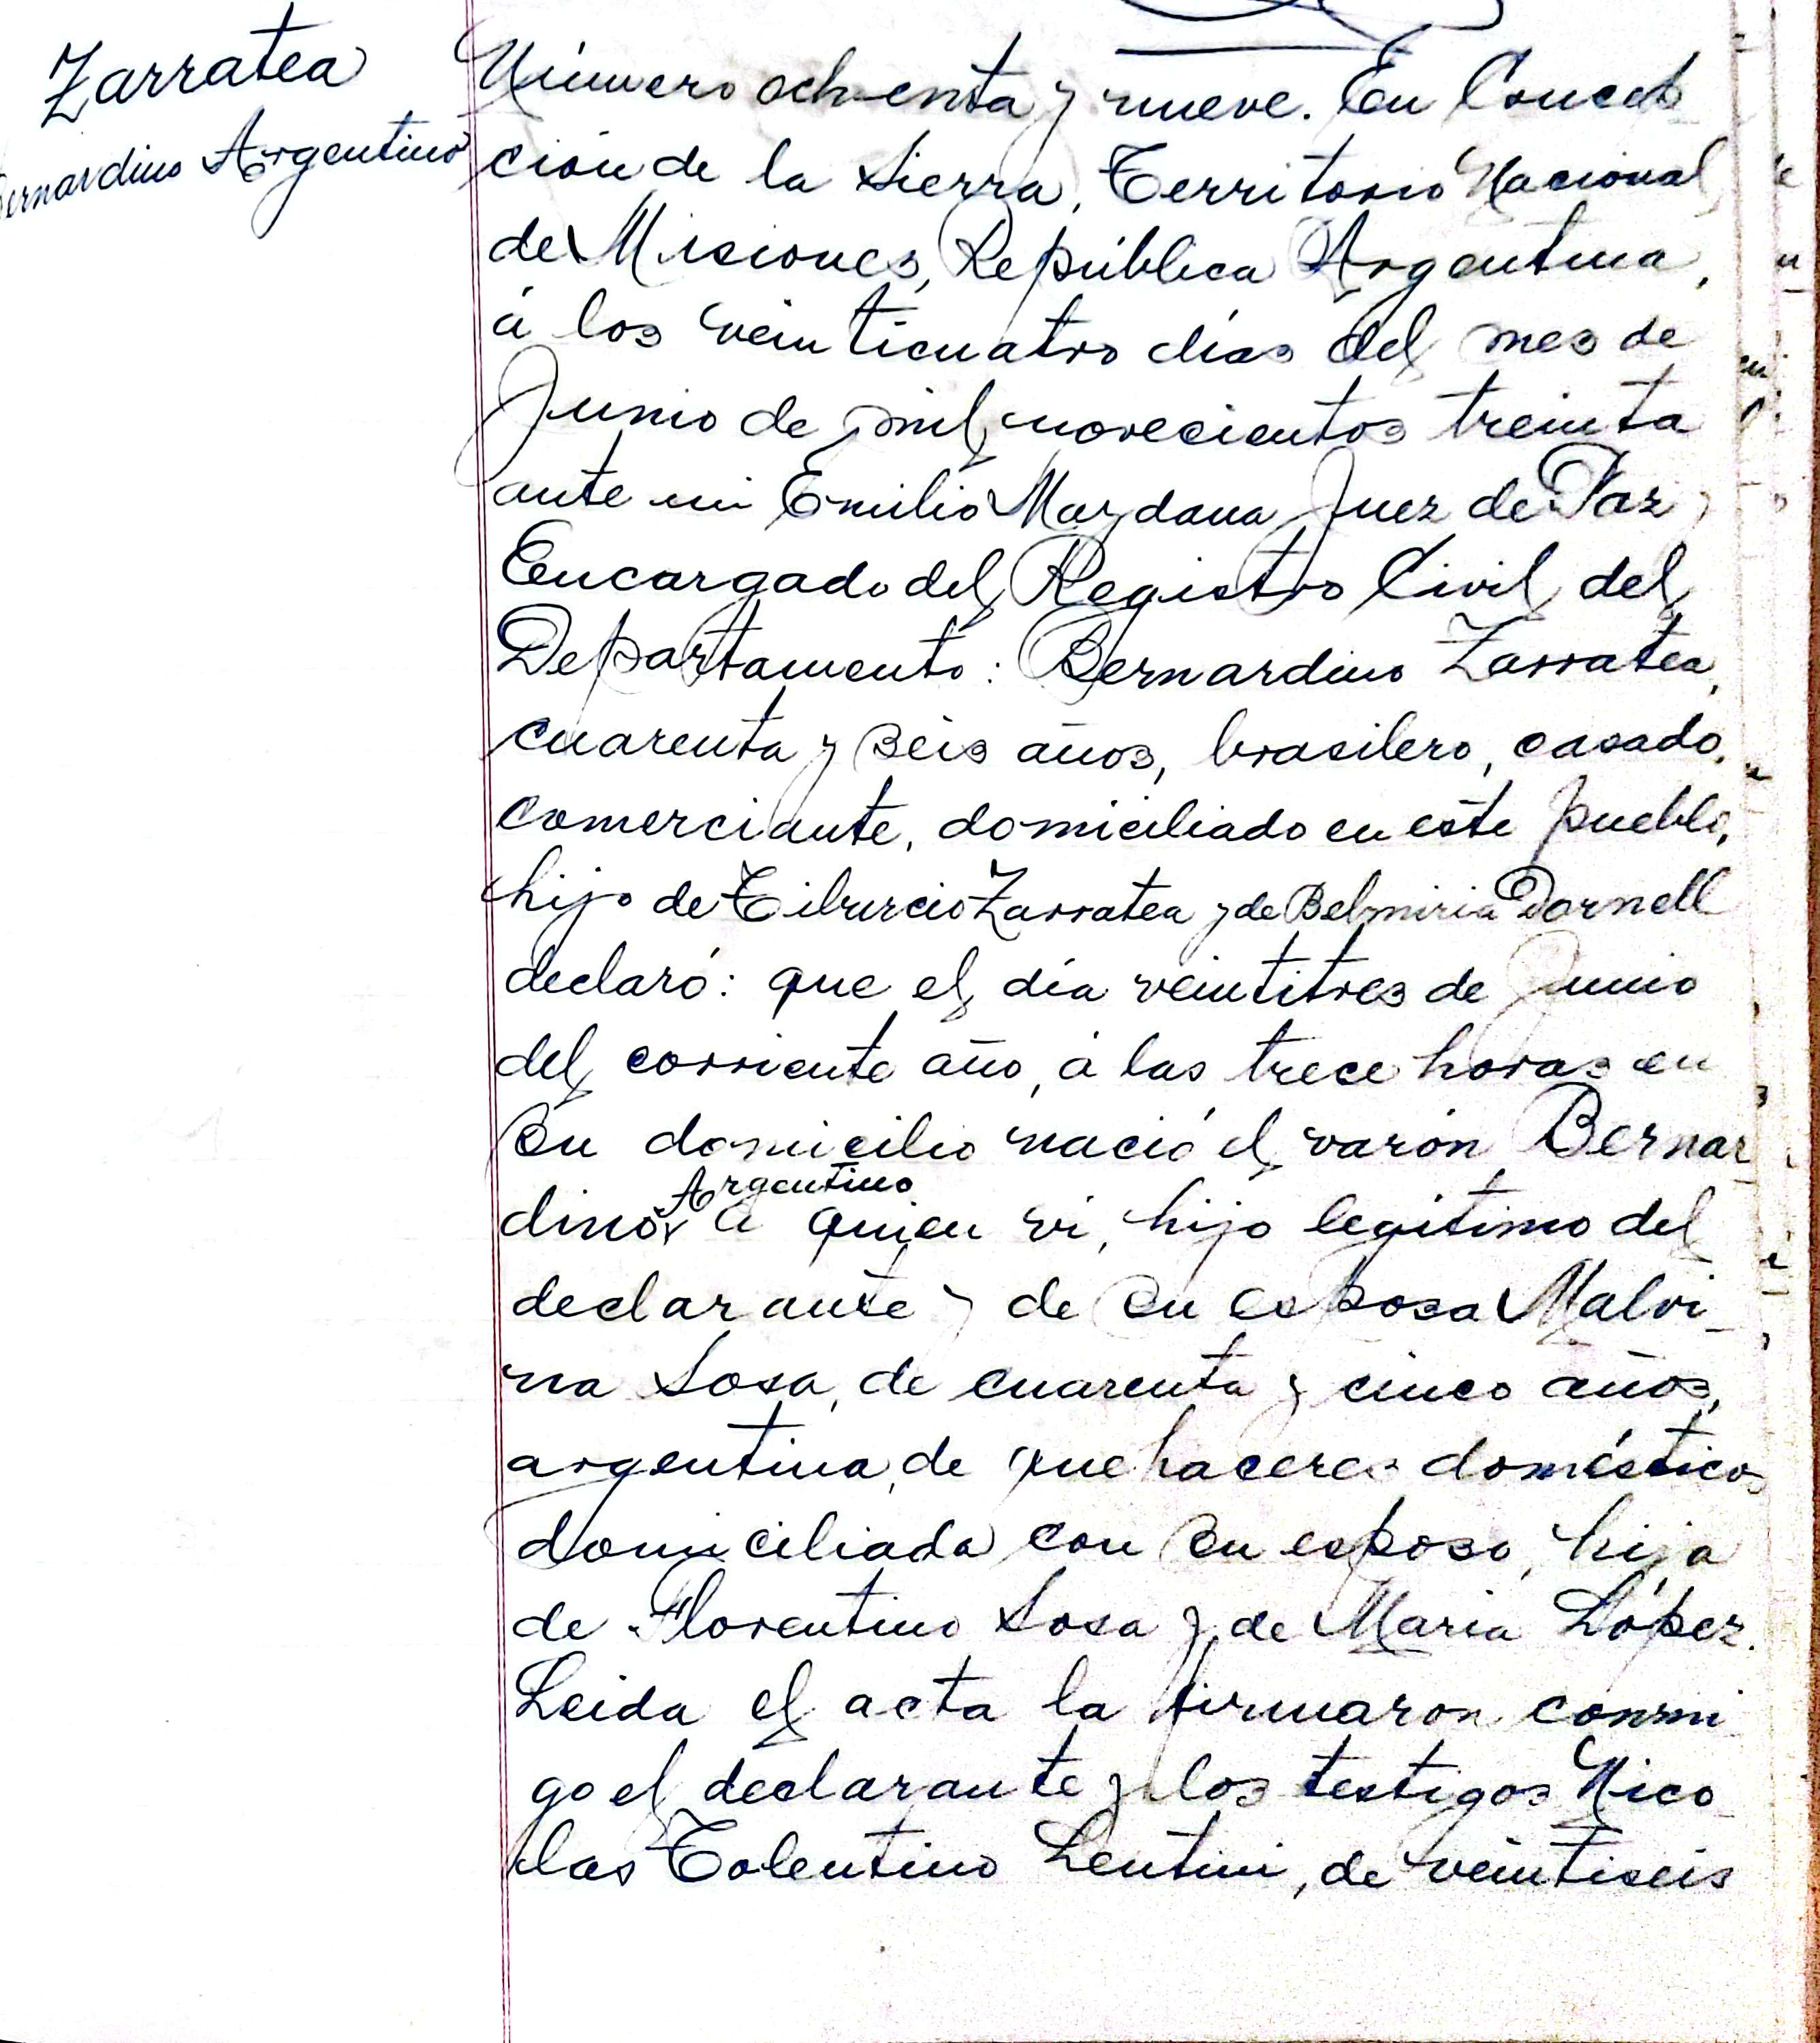 Zarratea
Bernardino Argentino
Número ochenta y nueve. En Concep
ción de la Sierra, Territorio Nacional
de Misiones, República Argentina,
á los veinticuatro días del mes de
Junio de mil novecientos treinta
ante mi Emilio Juez de Paz y
Encargado del Registro Civil del
Departamento: Bernardino Zarratea,
cuarenta y seis años, brasilero, casado,
comerciante, domiciliado en este pueblo,
hijo de Tiburcio Zarratea y de Belmiria Dornell
declaró: que el día veintitres de Junio
del corriente año, á las trece horas en
su domicilio nació el varón Bernar
Argentino
dino, á quien vi, hijo legítimo del
declarante y de su esposa Malvi_
na Sosa, de cuarenta y cinco años,
argentina, de quehaceres domésticos
domiciliada con su esposo, hija
de Florentino Sosa y de María López.
Leida el acta la firmaron conmi
go el declarante y los testigos Nico_
las Tolentino Lentini, de veintiseis